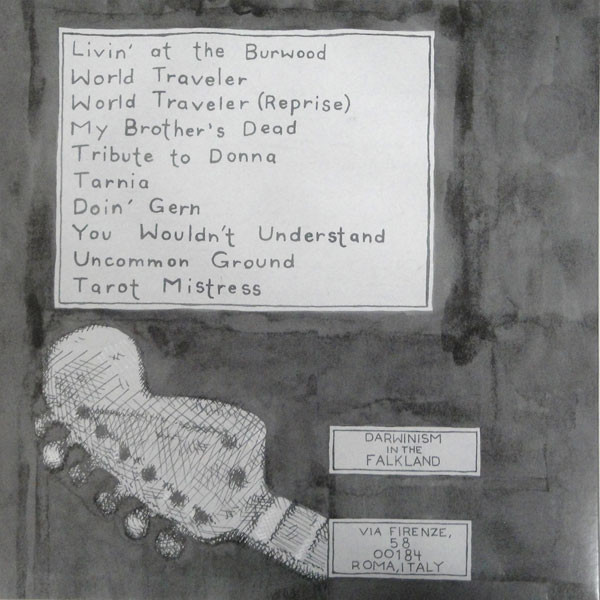 Livin' at the Burwood
World Traveler
World Traveler (Reprise)
My Brother's Dead
Tribute to Donna
Tarnia
Doin' Gern
You Wouldn't Understand
Uncommon Ground
Tarot Mistress
DARWINISM
IN THE
FALKLAND
VIA FIRENZE,
58
00184
ROMA, ITALY